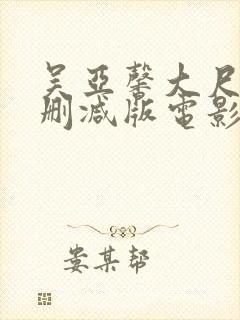 吴亚馨大尺
删减版电影
娄某帮